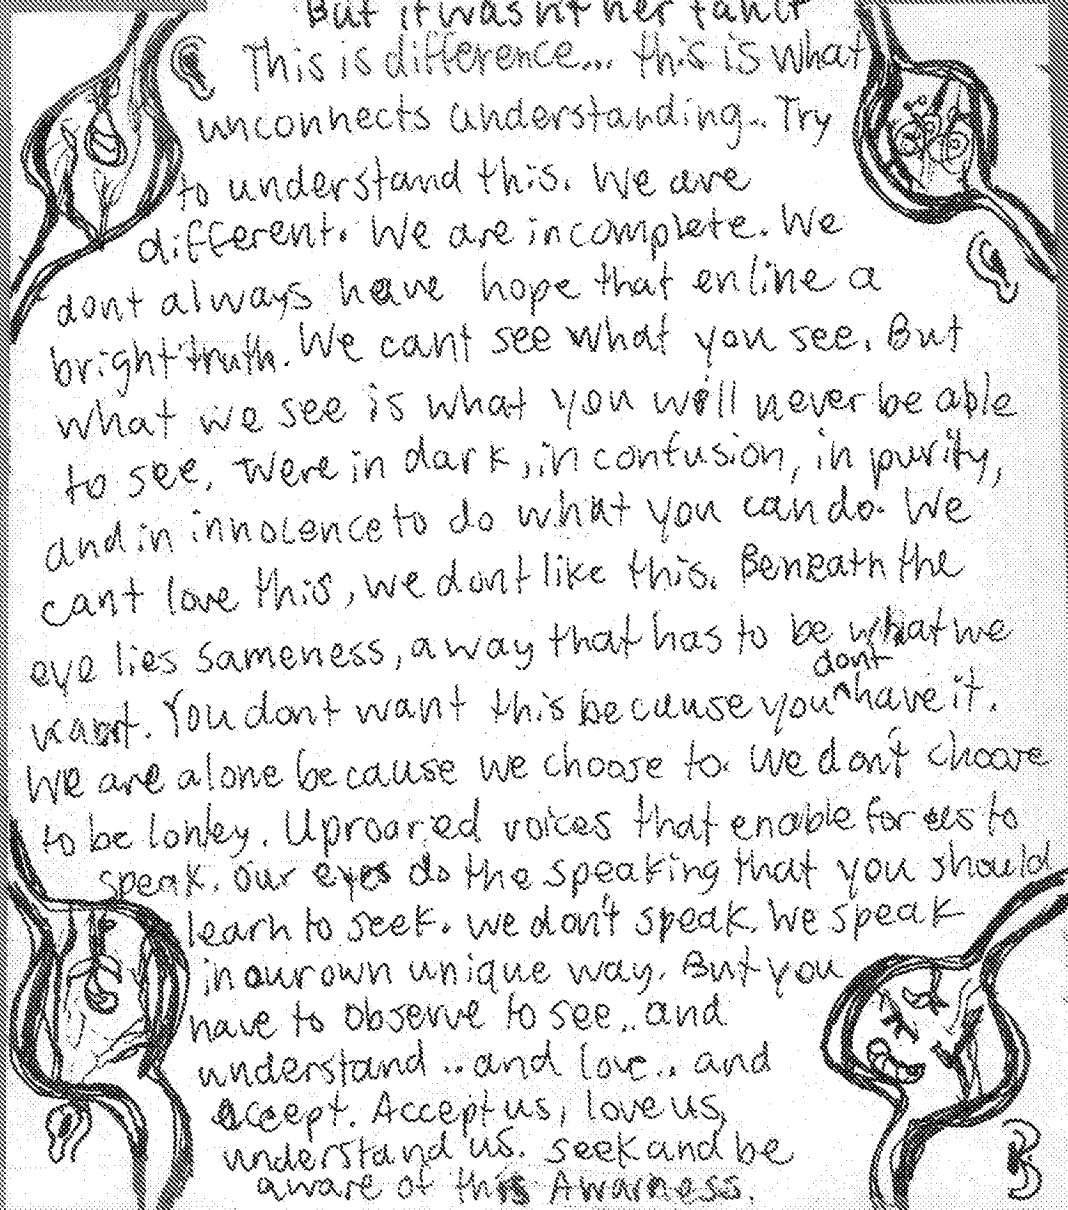 But it wasn't her fault
This is difference... this is what
unconnects understanding.. Try
to understand this. We are
different. We are incomplete. We
dont always have hope that enline a
bright truth. We cant see what you see. But
what we see is what you will never be able
to see. Were in dark, in confusion, in purity,
and in innocence to do what you can do. We
cant love this, we dont like this. Beneath the
eye lies sameness, a way that has to be what we
want. You dont want this because you dont have it.
We are alone because we choose to. We don't choose
to be lonley. Uproared voices that enable for us to
speak. Our eyes do the speaking that you should
learn to seek. We don't speak. We speak
in our own unique way. But you
have to observe to see.. and
understand .. and love .. and
accept. Accept us, love us,
understand us. seek and be
aware of this Awarness.